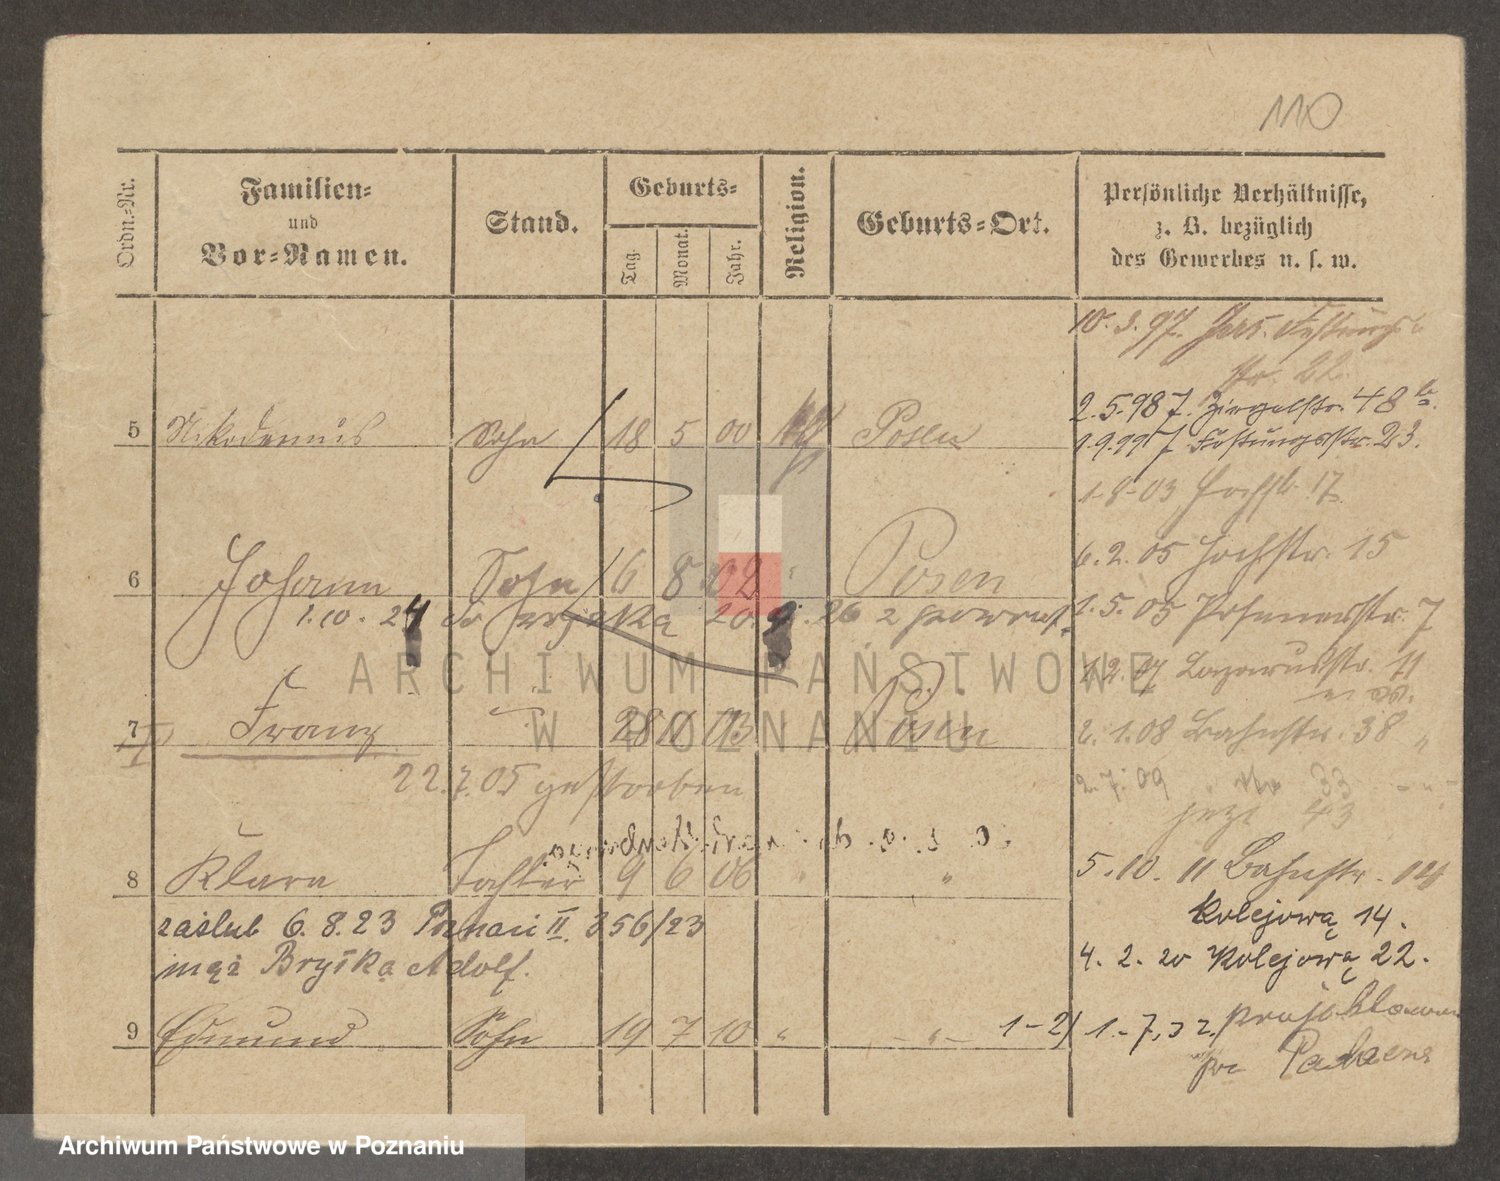 110
Ordn.-Nr.
Familien-
und
Vor-Namen.
Stand.
Geburts-
Tag.
Monat.
Jahr.
Religion.
Geburts-Ort.
Persönliche Verhältnisse,
z. B. bezüglich
des Gewerbes u. s. w.
10. 3. 97. Jers. Festungs
str. 22.
2. 5. 98 J. Ziegelstr. 48
5 Nikodemus Sohn 18 5 00 Posen
1. 9. 99 J. Festungsstr. 23.
1-8-03 Hochstr. 17
6. 2. 05 Hochstr. 15
6 Johann Sohn 16 8 02 Posen
1. 10. 24 do 20. 9. 26 z powrot.
1. 5. 05 Posenerstr. 7
1. 2. 07 Lazarusstr. 11
7 Franz 28 11 03 Posen
2. 1. 08 Bahnstr. 38 "
22. 7. 05 gestorben
2. 7. 09 33
jetzt 43
8 Klara Tochter 9 6 06 " "
5. 10. 11 Bahnstr. 14
zaślub 6. 8. 23 Poznań II. 356/23
Kolejową 14.
mąż Bryśka Adolf.
4. 2. 20 Kolejową 22.
9 Edmund Sohn 19 7 10 " - " -
1-2/ 1.-7, 32,
ARCHIWUM PAŃSTWOWE
W POZNANIU
Archiwum Państwowe w Poznaniu